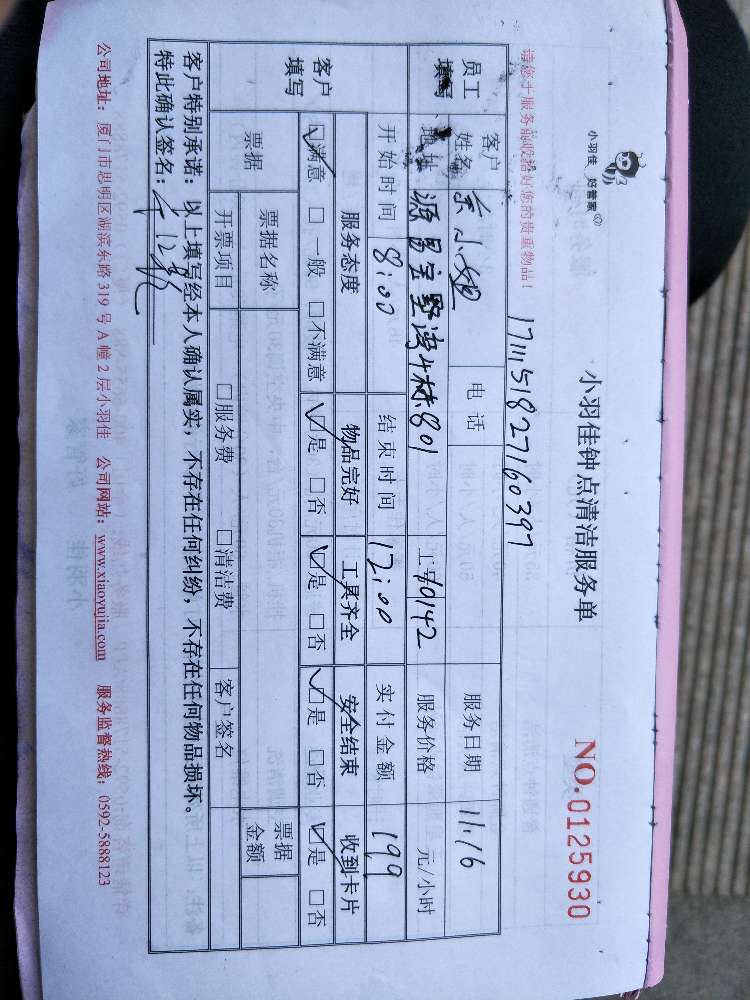 小羽佳 好管家
小羽佳钟点清洁服务单
NO.0125930
请您于服务前收拾好您的贵重物品!
1711151827160397
员工填写
客户姓名 小姐 电话 服务日期 11.16
地址 源昌宝墅湾4栋801 工号 10142 服务价格 元/小时
开始时间 8:00 结束时间 12:00 实付金额 199
客户填写
服务态度 物品完好 工具齐全 安全结束 收到卡片
☑满意 □一般 □不满意 ☑是 □否 ☑是 □否 ☑是 □否 ☑是 □否
票据 票据名称 票据金额
开票项目 □服务费 □清洁费 客户签名
客户特别承诺:以上填写经本人确认属实,不存在任何纠纷,不存在任何物品损坏。
特此确认签名:
公司地址:厦门市思明区湖滨东路 319 号 A 幢 2 层小羽佳 公司网站:www.xiaoyujia.com 服务监督热线:0592-5888123